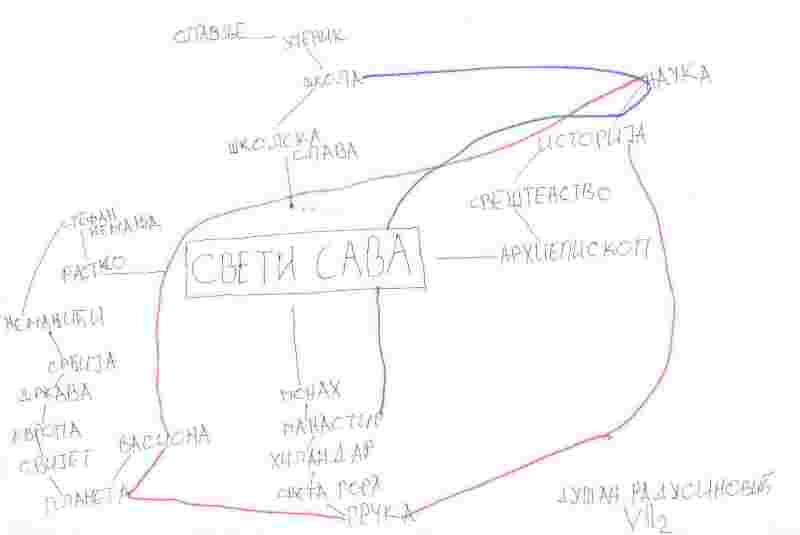 ОДЛАЗЕ
УЧЕНИК
ШКОЛА
НАУКА
ШКОЛСКА
СЛАВА
ИСТОРИЈА
СВЕШТЕНСТВО
АРХИЕПИСКОП
СТЕФАН
НЕМАЊА
РАСТКО
СВЕТИ САВА
НЕМАЊИЋИ
СРБИЈА
ДРЖАВА
ЕВРОПА
СВИЈЕТ
ПЛАНЕТА
ВАСИОНА
МОНАХ
МАНАСТИР
ХИЛАНДАР
СВЕТА ГОРА
ГРЧКА
VII2